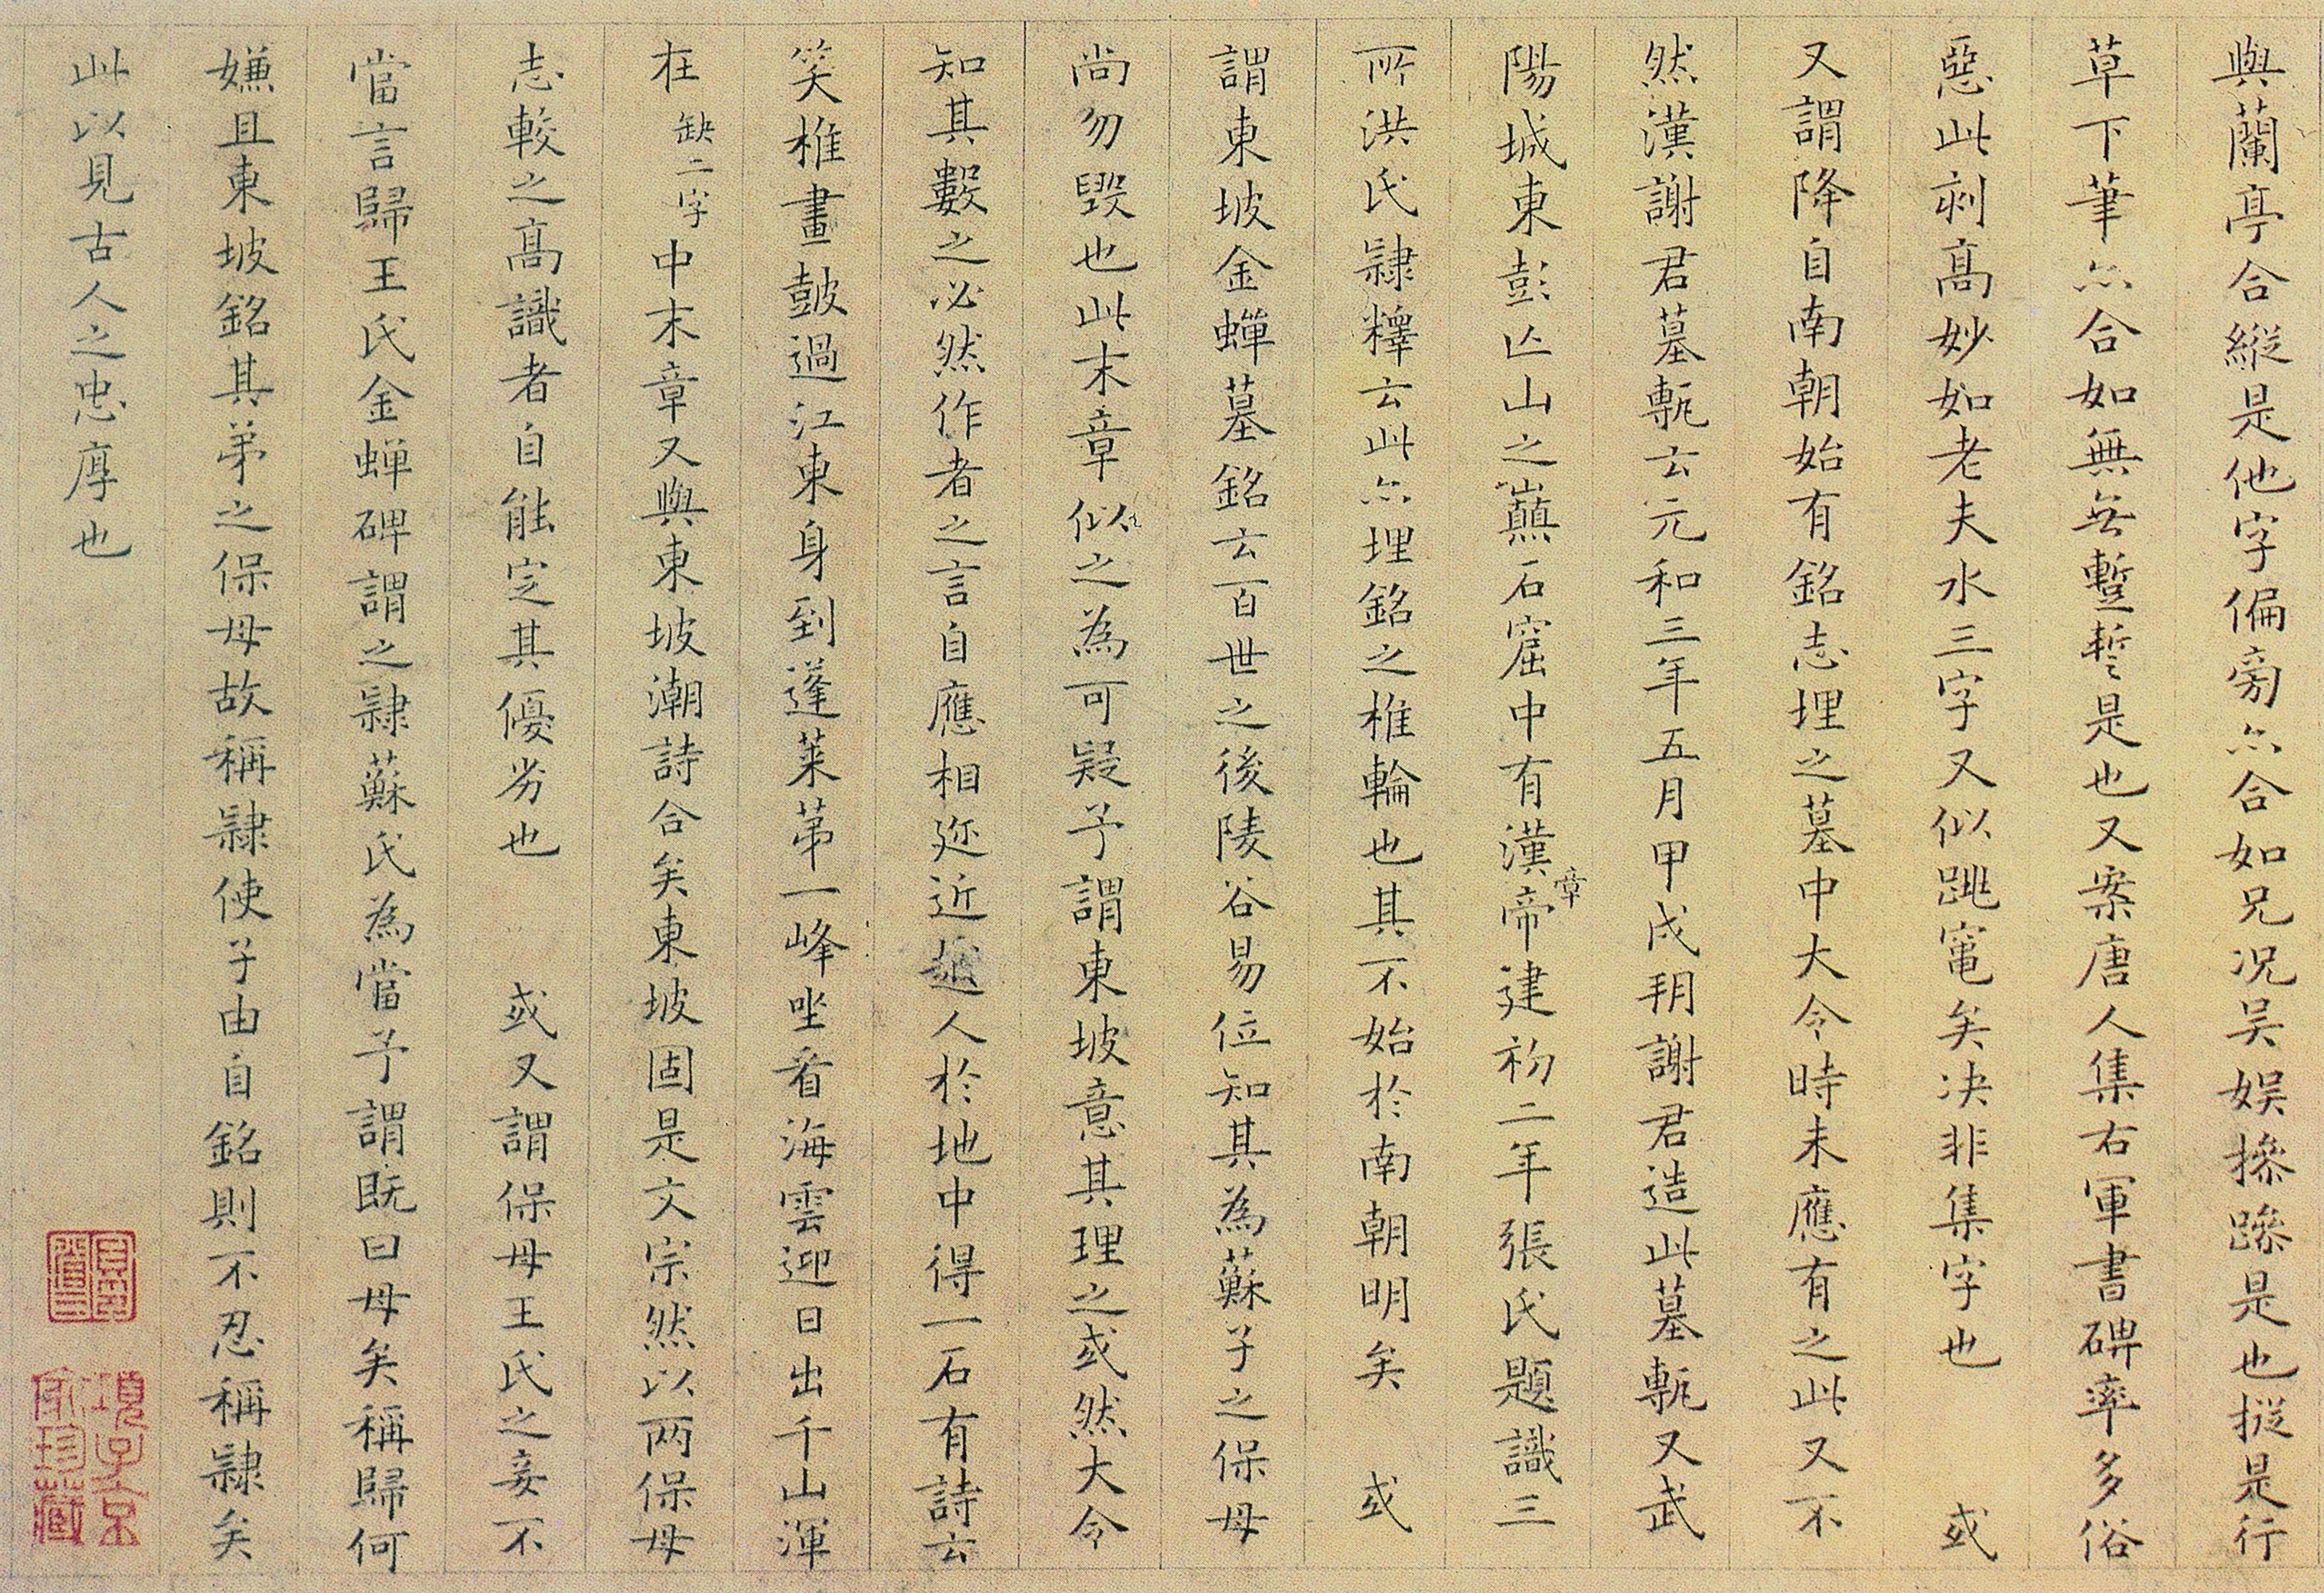 與蘭亭合縱是他字偏旁亦合如兄况吴娱摻蹤是也摐是行
草下筆亦合如無兂蹔誓是也又案唐人集右軍書碑率多俗
惡此刻髙妙如老夫水三字又似跳竃矣决非集字也　或
又謂降自南朝始有銘志埋之墓中大令時未應有之此又不
然漢謝君墓甎云元和三年五月甲戌朔謝君造此墓甎又武
陽城東彭亾山之巔石窟中有漢章帝建初二年張氏題識三
所洪氏隷釋云此亦埋銘之椎輪也其不始於南朝明矣　或
謂東坡金蟬墓銘云百世之後陵谷易位知其為蘇子之保母
尚勿毀也此末章似之為可疑予謂東坡意其理之或然大令
知其數之必然作者之言自應相近近越人於地中得一石有詩云
笑椎畫鼓過江東身到蓬莱苐一峰坐看海雲迎日出千山渾
在缺二字中末章又與東坡潮詩合矣東坡固是文宗然以两保母
志較之髙識者自能定其優劣也　或又謂保母王氏之妾不
當言歸王氏金蟬碑謂之隷蘇氏為當予謂既曰母矣稱歸何
嫌且東坡銘其苐之保母故稱隷使子由自銘則不忍稱隷矣
此以見古人之忠厚也
項子京
家珍藏